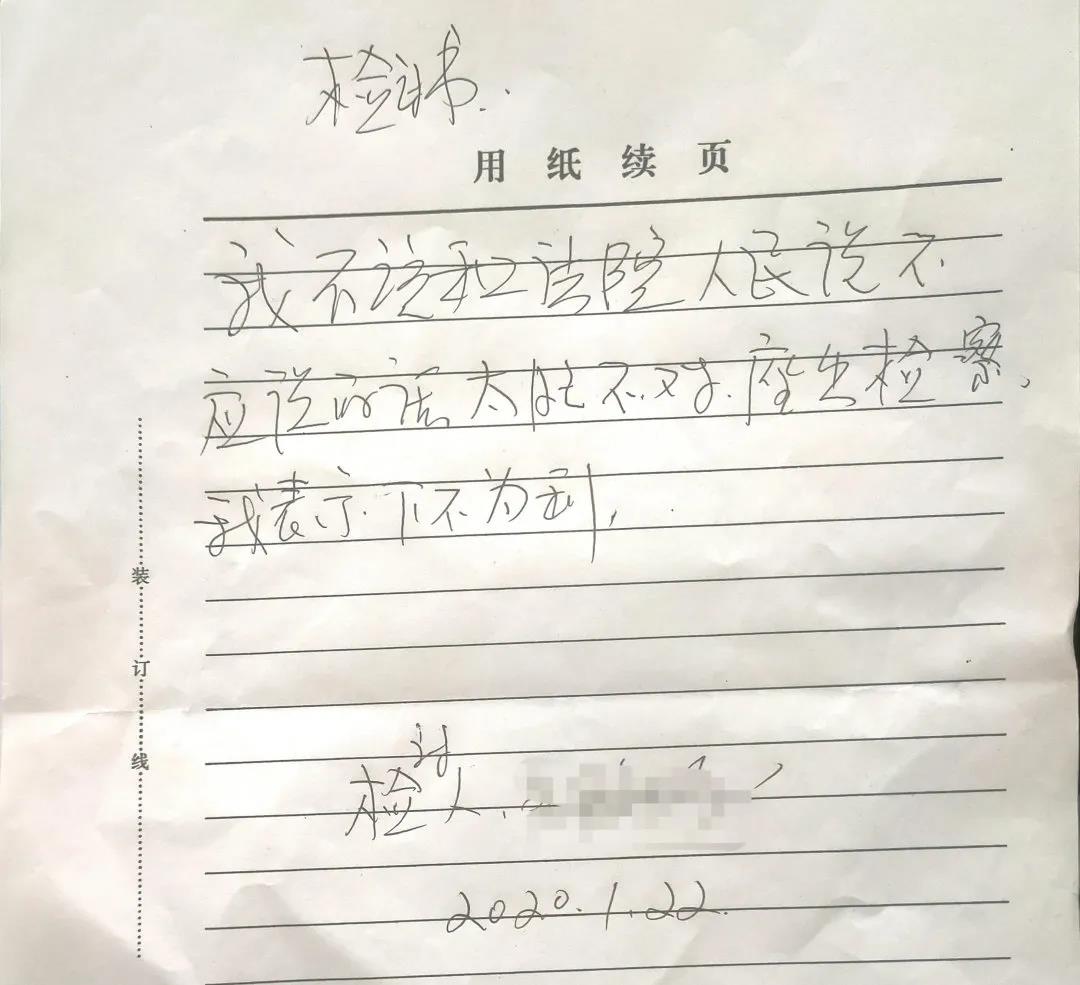 检讨书..
用纸续页
我不该和法院人民说不
应说的话太肚不对.座出检察、
我表示.下不为利,
检讨人.
2020.1.22.
装订线